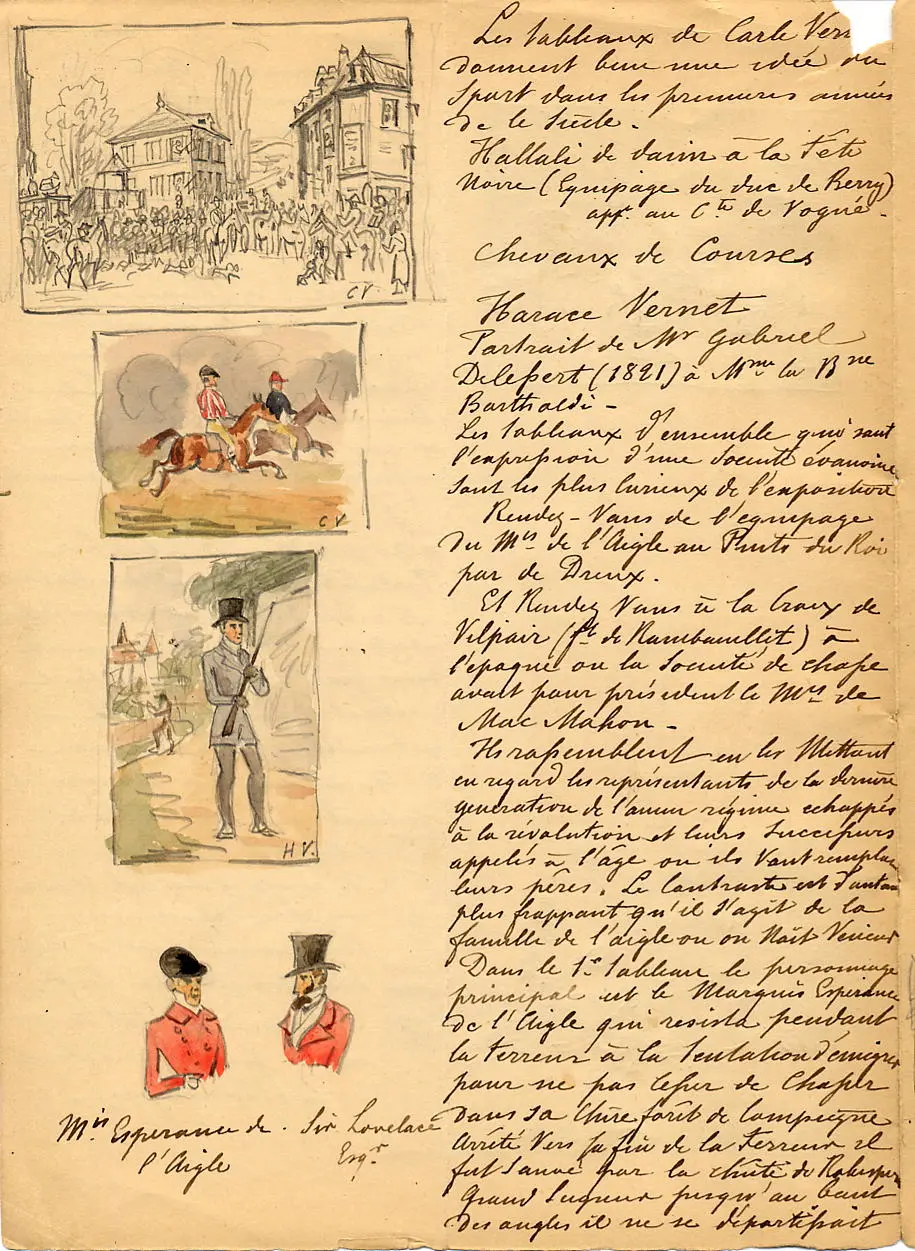 Les tableaux de Carle Vern
donnent bien une idée du
Sport dans les premieres années
de le Siècle.
Hallali de daim à la Tête
Noire (Equipage du duc de Berry)
appt au Cte de Vogué.
Chevaux de Courses
Horace Vernet
Portrait de Mr Gabriel
Delessert (1821) à Mme la Bne
Bartholdi -
Les tableaux d'ensemble qui sont
l'expression d'une Société évanouie
sont les plus curieux de l'exposition
Rendez-Vous de l'équipage
du Mis de l'Aigle au Puits du Roi
par de Dreux.
Et Rendez Vous à la Croix de
Vilpair (ft de Rambouillet) à
l'époque ou la Société de chasse
avait pour président le Mis de
Mac Mahon -
Ils rassemblent en les Mettant
en regard les représentants de la dernière
generation de l'ancien régime echappés
à la révolution et leurs Successeurs
appelés à l'âge ou ils Vont remplacer
leurs pères. Le Contraste est d'autan
plus frappant qu'il s'agit de la
famille de l'aigle ou on Naît Veneur
Dans le 1er tableau le personnage
principal est le Marquis Esperance
de l'Aigle qui resista pendant
la Terreur à la tentation d'émigrer
pour ne pas Cesser de Chasser
dans sa Chère forêt de Compiegne
Arrêté Vers la fin de la Terreur il
fut Sauvé par la chûte de Robespier
Grand Seigneur jusqu'au bout
des ongles il ne se départissait
CV
CV
HV.
Mis Esperance de
l'Aigle
Sir Lovelace
Esqr